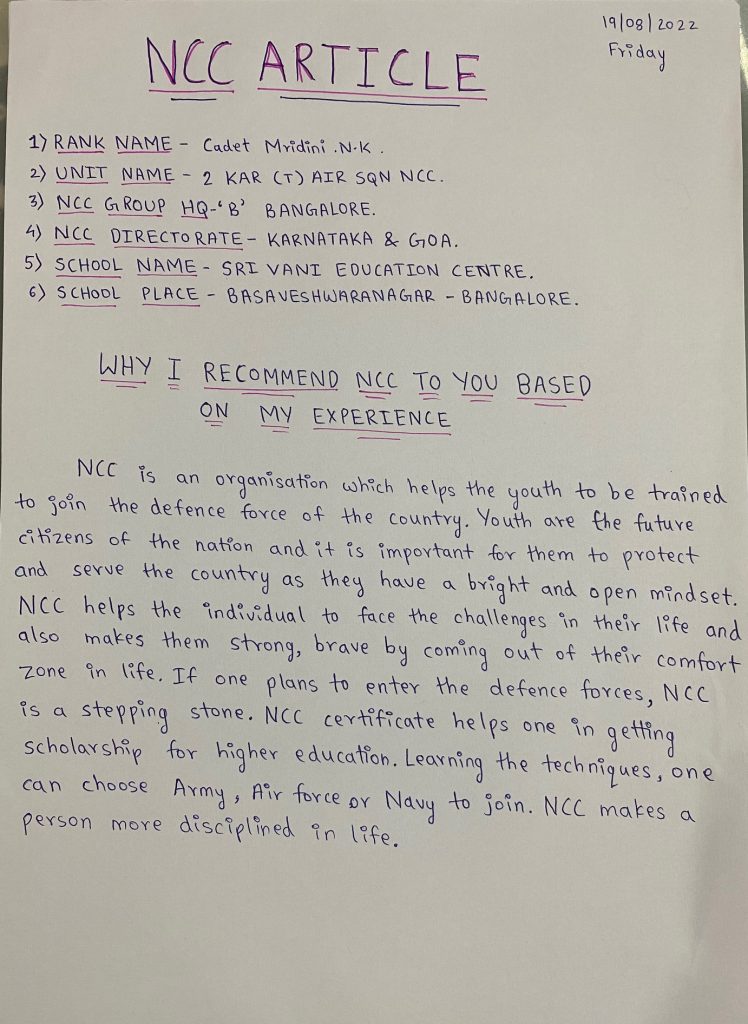 19/08/2022
Friday
NCC ARTICLE
1) RANK NAME - Cadet Mridini .N.K .
2) UNIT NAME - 2 KAR (T) AIR SQN NCC.
3) NCC GROUP HQ-'B' BANGALORE.
4) NCC DIRECTORATE - KARNATAKA & GOA.
5) SCHOOL NAME - SRI VANI EDUCATION CENTRE.
6) SCHOOL PLACE - BASAVESHWARANAGAR - BANGALORE.
WHY I RECOMMEND NCC TO YOU BASED
ON MY EXPERIENCE
NCC is an organisation which helps the youth to be trained
to join the defence force of the country. Youth are the future
citizens of the nation and it is important for them to protect
and serve the country as they have a bright and open mindset.
NCC helps the individual to face the challenges in their life and
also makes them strong, brave by coming out of their comfort
zone in life. If one plans to enter the defence forces, NCC
is a stepping stone. NCC certificate helps one in getting
scholarship for higher education. Learning the techniques, one
can choose Army, Air force or Navy to join. NCC makes a
person more disciplined in life.